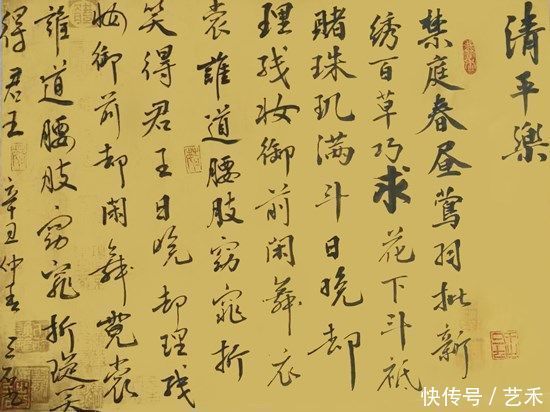 清平樂
禁庭春昼鶯羽披新
绣百草巧求花下斗祇
赌珠玑满斗日晚却
理残妆御前闲舞衣
裳誰道腰肢窈窕折
笑得君王日晚却理残
妆御前却闲舞霓裳
誰道腰肢窈窕折旋笑
得君王 辛丑仲春
快传号／艺禾